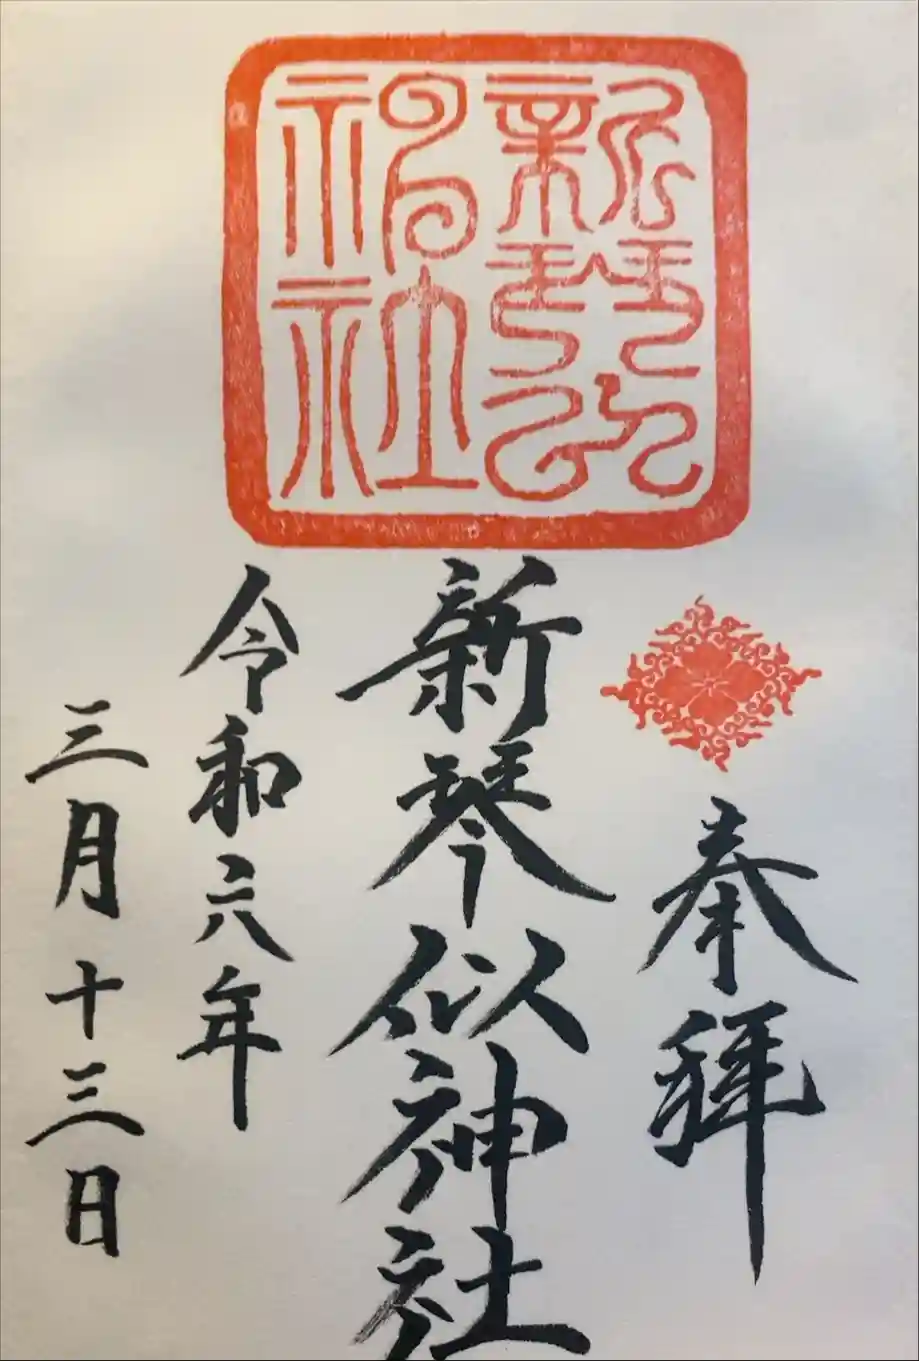 新琴似
神社
奉拝
新琴似神社
令和六年
三月十三日